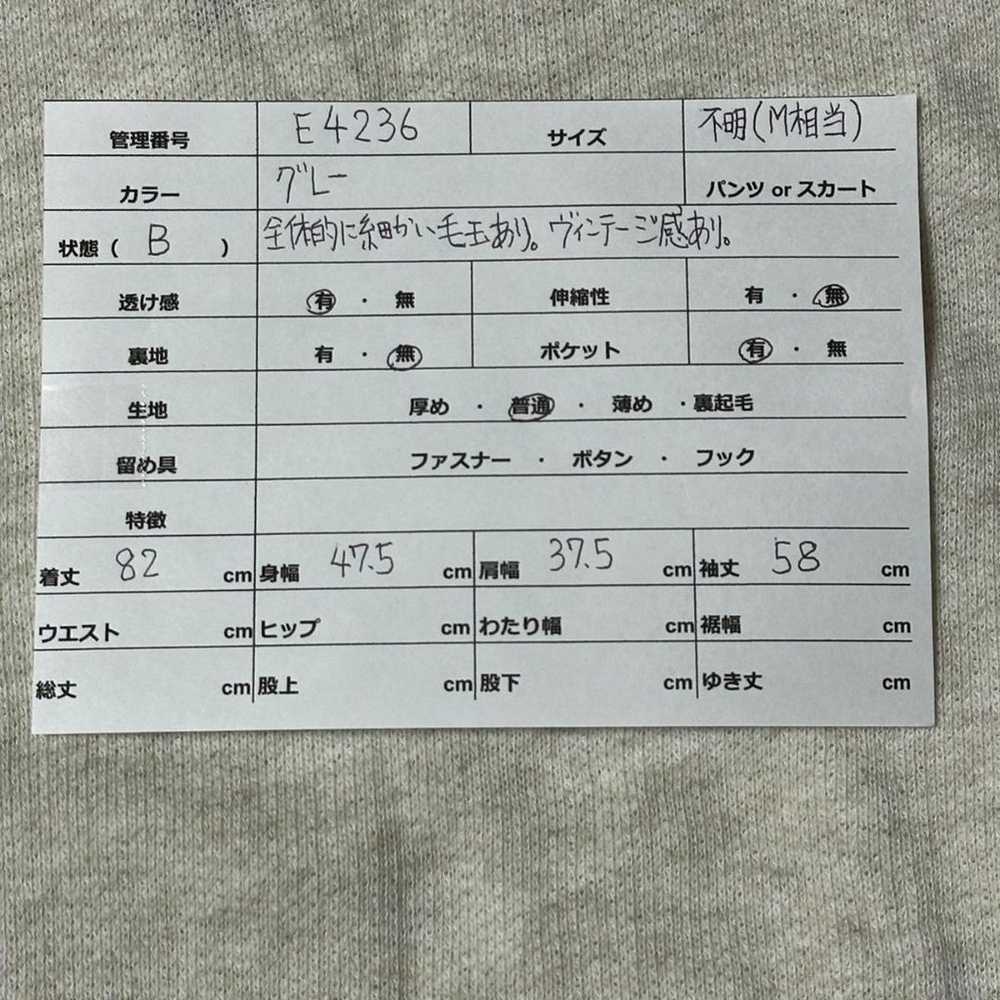 管理番号 E4236 サイズ 不明(M相当)
カラー グレー パンツ or スカート
状態( B ) 全体的に細かい毛玉あり。ヴィンテージ感あり。
透け感 有 ・ 無 伸縮性 有 ・ 無
裏地 有 ・ 無 ポケット 有 ・ 無
生地 厚め ・ 普通 ・ 薄め ・裏起毛
留め具 ファスナー ・ ボタン ・ フック
特徴
着丈 82 cm 身幅 47.5 cm 肩幅 37.5 cm 袖丈 58 cm
ウエスト cm ヒップ cm わたり幅 cm 裾幅 cm
総丈 cm 股上 cm 股下 cm ゆき丈 cm